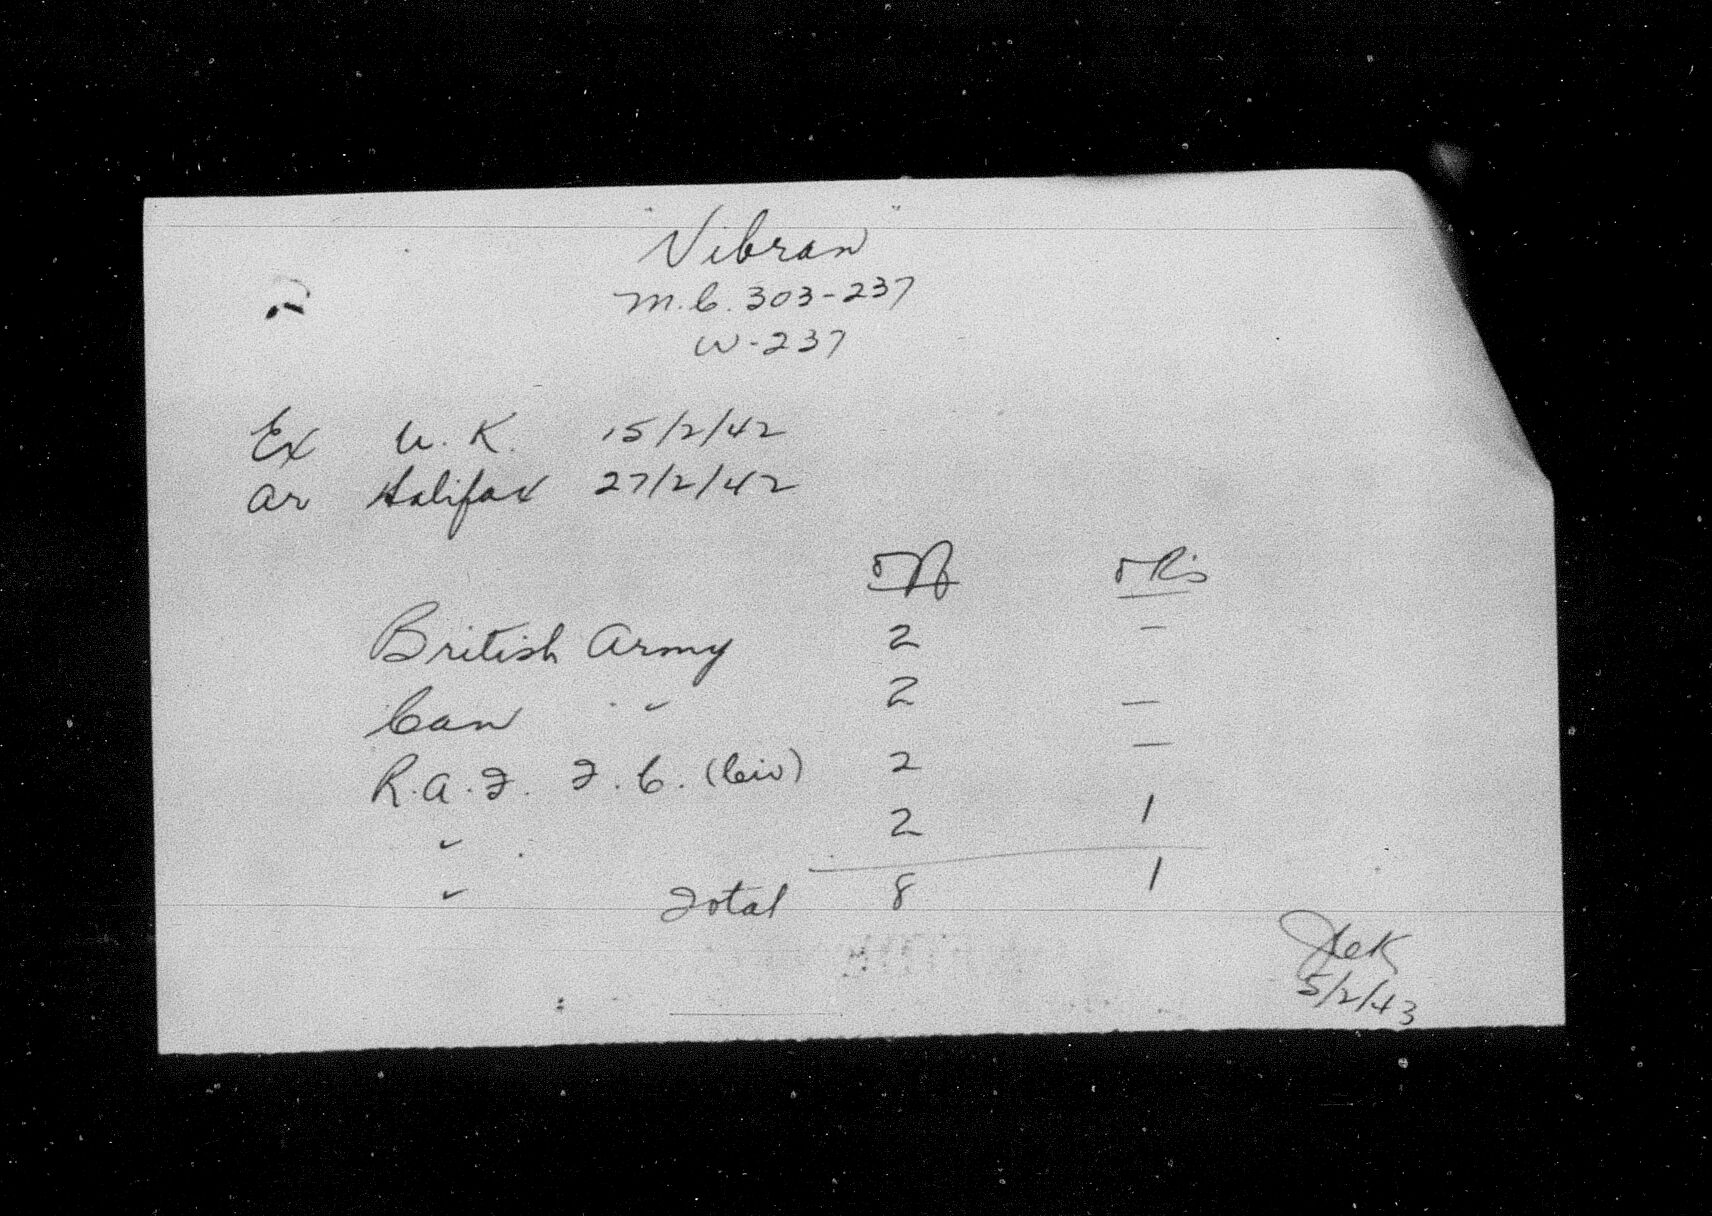 "Vibran"
M.C. 303-237
W-237
Ex U.K. 15/2/42
Ar Halifax 27/2/42
Off ORs
British Army 2 —
Can " 2 —
R.A.F. F.C. (Civ) 2 —
" 2 1
" Total 8 1
5/2/43